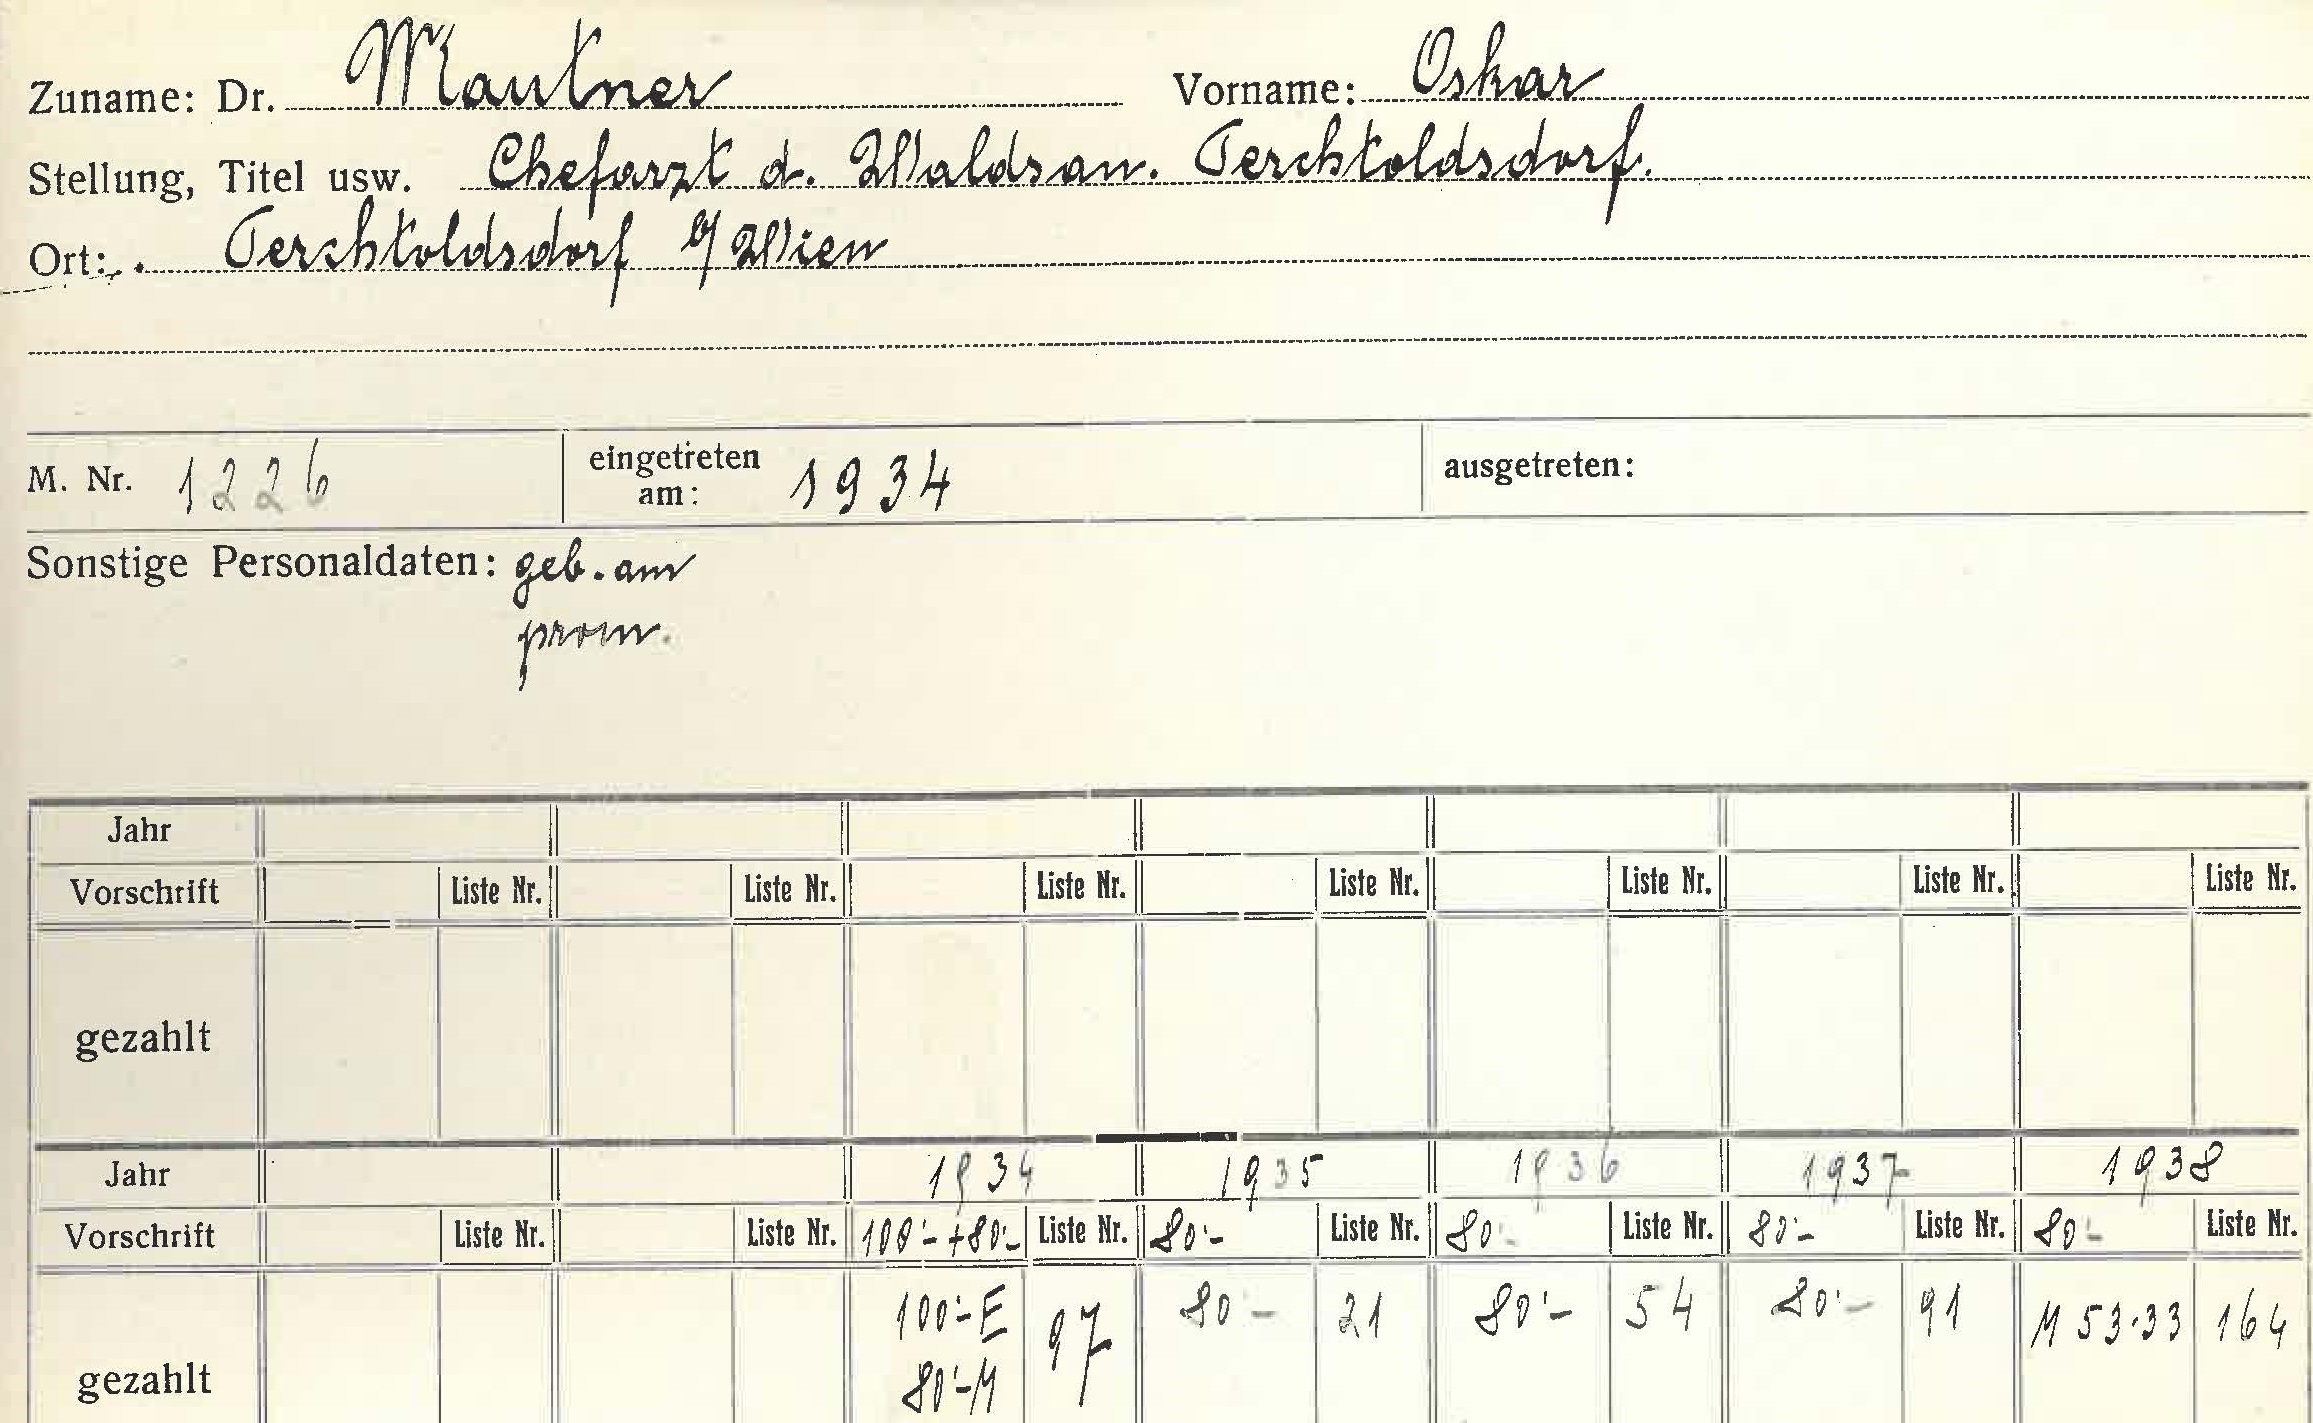 Zuname: Dr. Mautner Vorname: Oskar
Stellung, Titel usw. Chefarzt d. Waldsan. Perchtoldsdorf.
Ort: Perchtoldsdorf b/ Wien
M. Nr. 1226 eingetreten am: 1934 ausgetreten:
Sonstige Personaldaten: geb. am
prom.
Jahr
Vorschrift Liste Nr. Liste Nr. Liste Nr. Liste Nr. Liste Nr. Liste Nr. Liste Nr.
gezahlt
Jahr 1934 1935 1936 1937 1938
Vorschrift Liste Nr. Liste Nr. 100·- + 80·- Liste Nr. 80·- Liste Nr. 80·- Liste Nr. 80·- Liste Nr. 80·- Liste Nr.
gezahlt 100·- E 97 80·- 21 80·- 54 80·- 91 M 53·33 164
80·- M